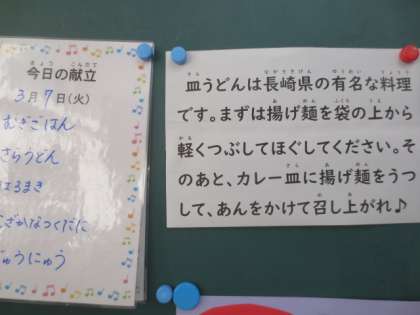 今日の献立
3月7日(火)
むぎごはん
さらうどん
はるまき
こざかなつくだに
ぎゅうにゅう
皿うどんは長崎県の有名な料理
です。まずは揚げ麺を袋の上から
軽くつぶしてほぐしてください。そ
のあと、カレー皿に揚げ麺をうつ
して、あんをかけて召し上がれ♪